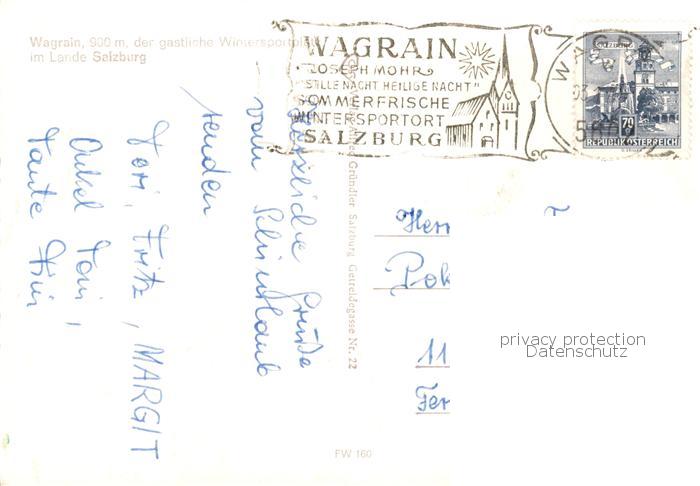 Wagrain, 900 m, der gastliche Wintersportplatz
im Lande Salzburg
WAGRAIN
JOSEPH MOHR
"STILLE NACHT HEILIGE NACHT"
SOMMERFRISCHE
WINTERSPORTORT
SALZBURG
WAGRA
SALZBURG
70
REPUBLIK ÖSTERREICH
Herzliche Grüße
vom Schiurlaub
senden
Fritz, MARGIT
Onkel Toni,
Tante
Gründler Salzburg Getreidegasse Nr. 22
Herr
Pok
11
Fer
privacy protection
Datenschutz
FW 160